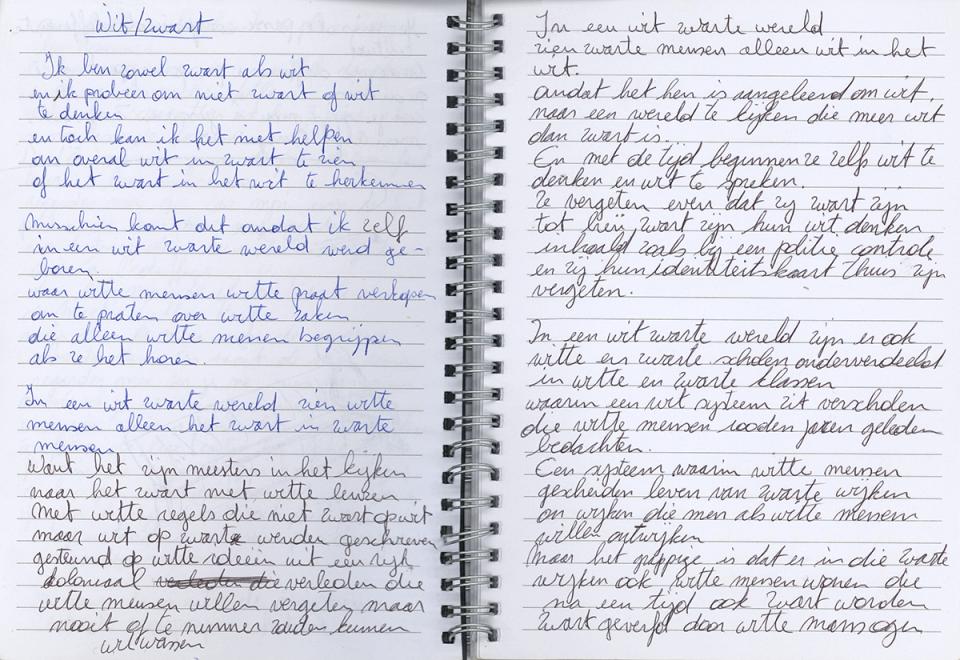 Wit/zwart
Ik ben zowel zwart als wit
en ik probeer om niet zwart of wit
te denken
en toch kan ik het niet helpen
om overal wit in zwart te zien
of het zwart in het wit te herkennen
misschien komt dit omdat ik zelf
in een wit zwarte wereld werd ge-
boren.
waar witte mensen witte praat verkopen
om te praten over witte zaken
die alleen witte mensen begrijpen
als ze het horen
In een wit zwarte wereld zien witte
mensen alleen het zwart in zwarte
mensen
Want het zijn meesters in het kijken
naar het zwart met witte lenzen
Met witte regels die niet zwart op wit
maar wit op zwart worden geschreven
gesteund op witte ideeën uit een rijk
koloniaal verleden die
witte mensen willen vergeten maar
nooit of te nimmer zouden kunnen
wit wassen
In een wit zwarte wereld
zien zwarte mensen alleen wit in het
wit.
omdat het hen is aangeleerd om wit,
naar een wereld te kijken die meer wit
dan zwart is.
En met de tijd beginnen ze zelf wit te
denken en wit te spreken.
Ze vergeten even dat zij zwart zijn
tot hun zwart zijn hun wit denken
inhaald zoals bij een politie controle
en zij hun identiteitskaart thuis zijn
vergeten.
In een wit zwarte wereld zijn er ook
witte en zwarte scholen onderverdeeld
in witte en zwarte klassen
waarin een wit systeem zit verscholen
die witte mensen jaren geleden
bedachten.
Een systeem waarin witte mensen
gescheiden leven van zwarte wijken
en wijken die men als witte mensen
willen ontwijken
Maar het grappige is dat er in die zwarte
wijken ook witte mensen wonen die
na een tijd ook zwart worden
zwart geverfd door witte